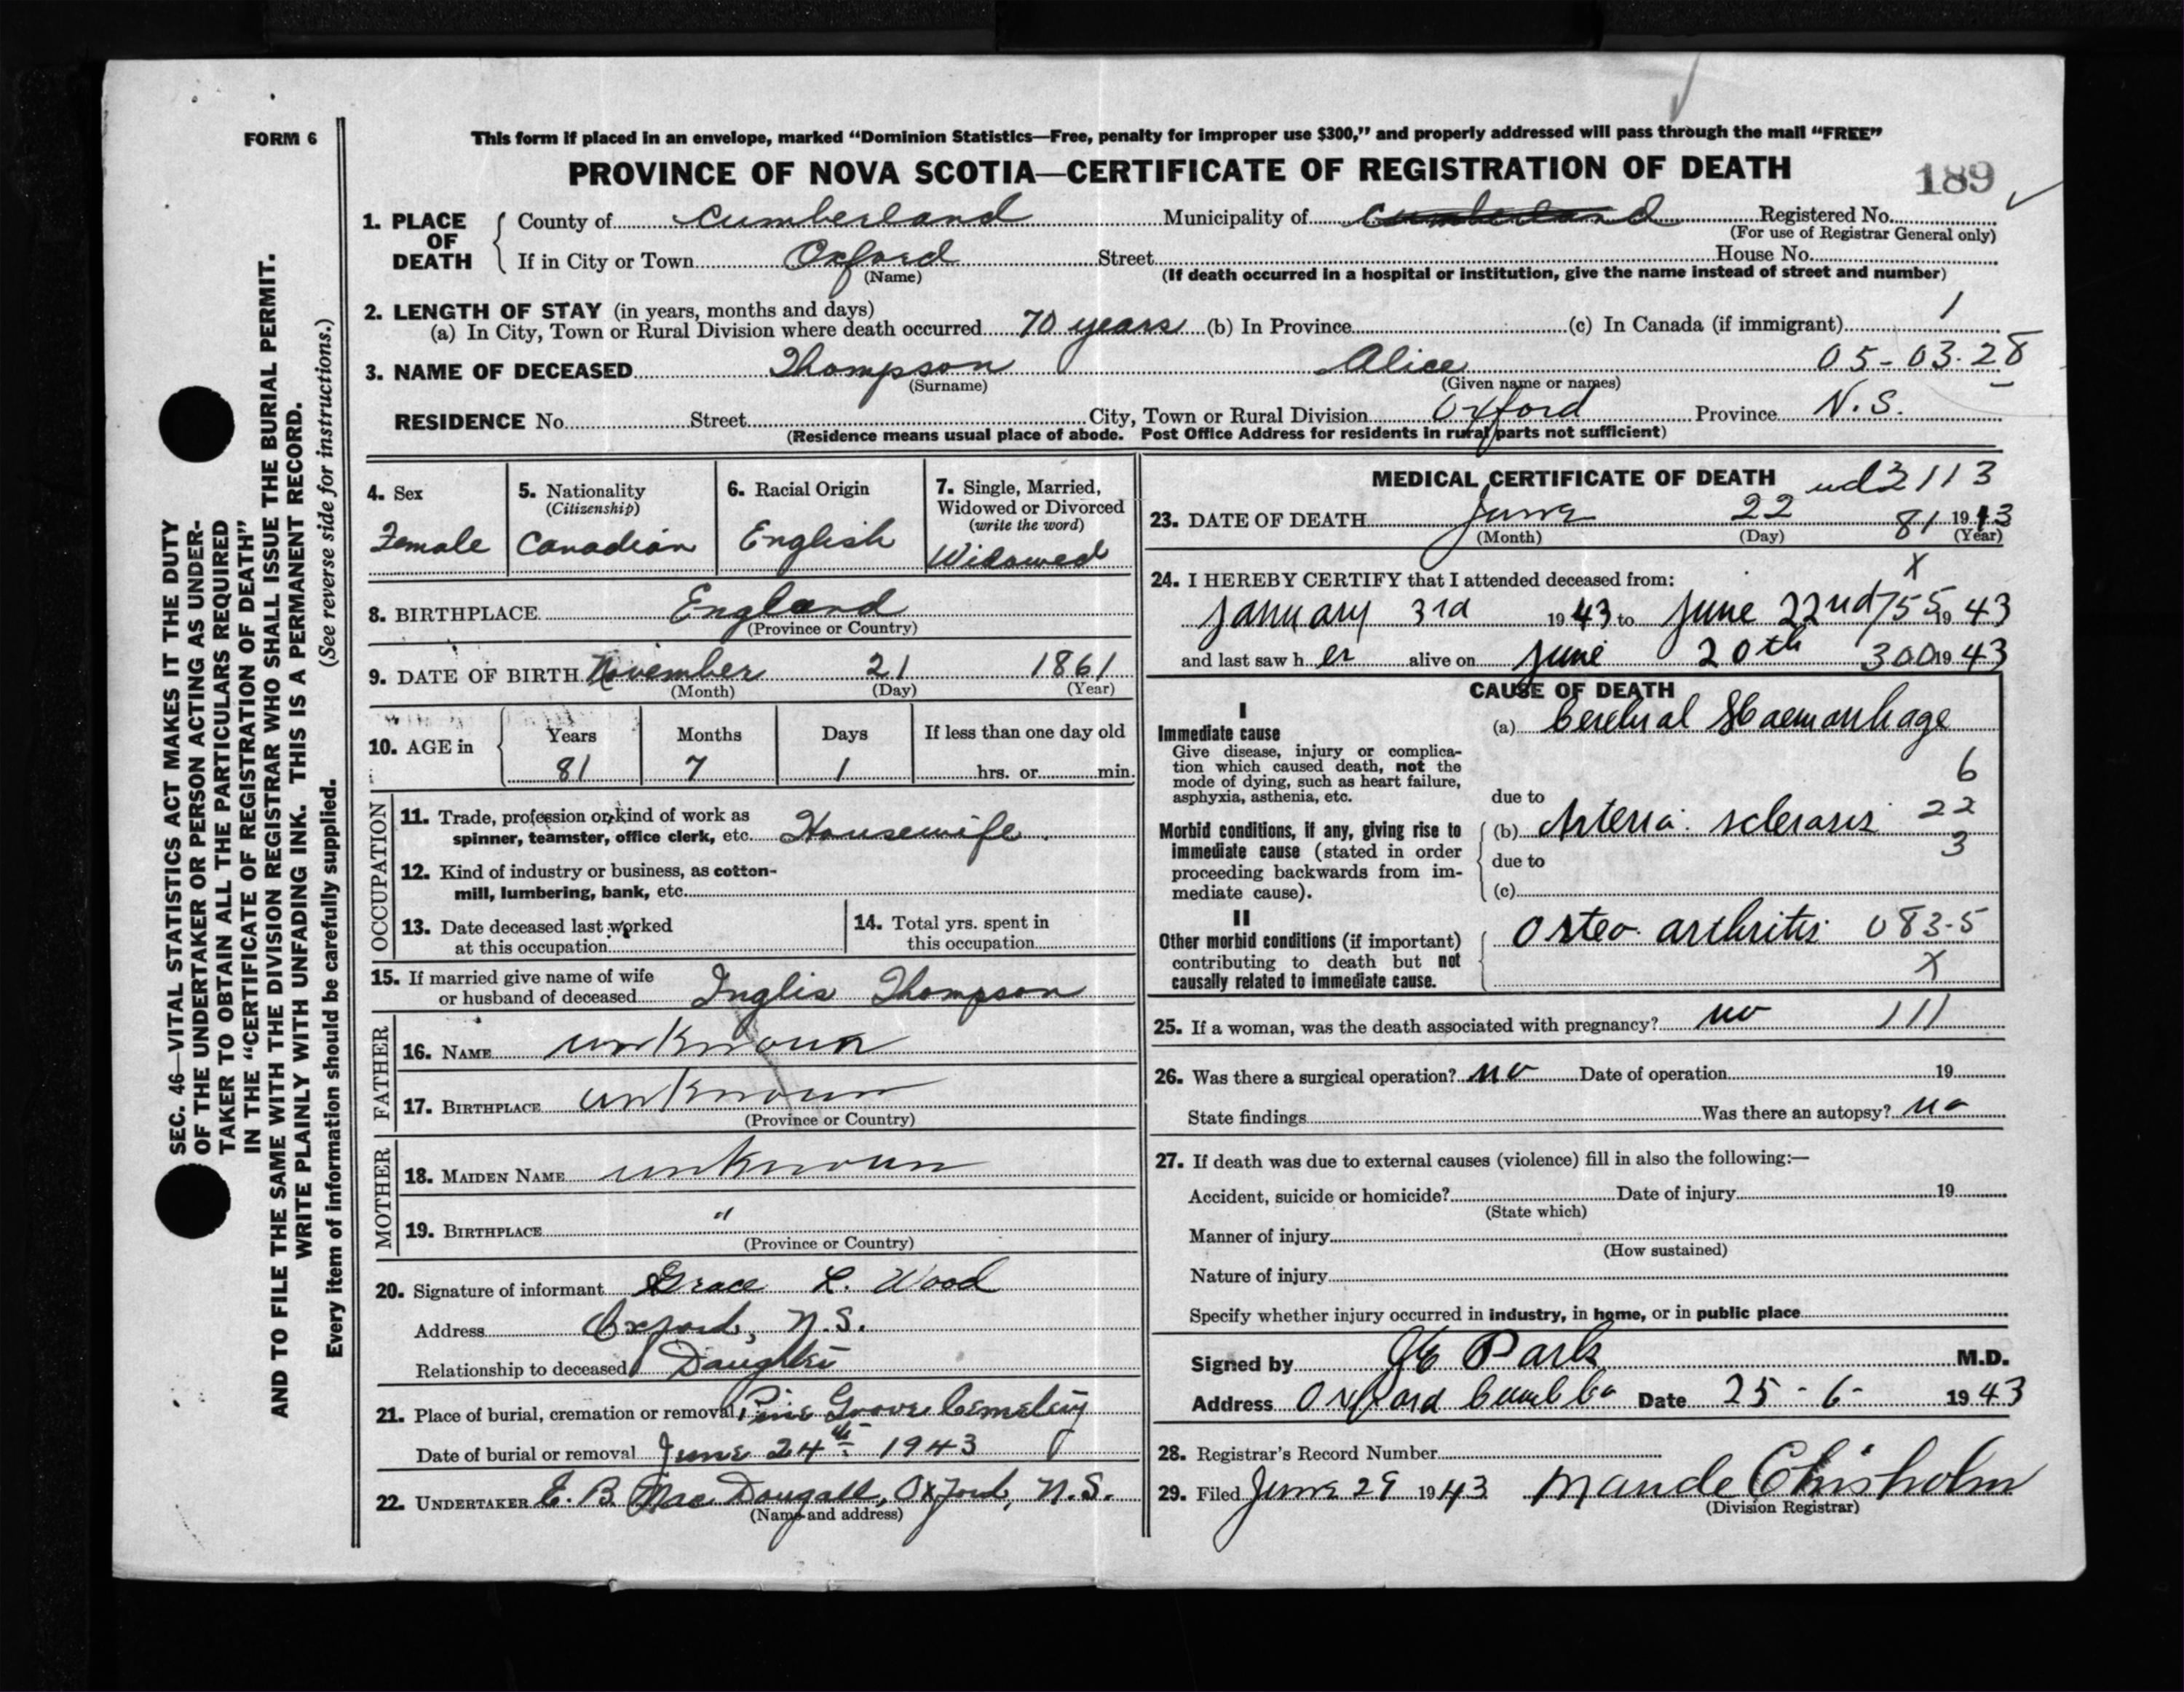 FORM 6
This form if placed in an envelope, marked “Dominion Statistics—Free, penalty for improper use $300,” and properly addressed will pass through the mail “FREE”
PROVINCE OF NOVA SCOTIA—CERTIFICATE OF REGISTRATION OF DEATH
189
1. PLACE OF DEATH County of Cumberland Municipality of Cumberland Registered No.
(For use of Registrar General only)
If in City or Town Oxford Street House No.
(Name) (If death occurred in a hospital or institution, give the name instead of street and number)
2. LENGTH OF STAY (in years, months and days) 1
(a) In City, Town or Rural Division where death occurred 70 years (b) In Province (c) In Canada (if immigrant)
3. NAME OF DECEASED Thompson Alice 05-03-28
(Surname) (Given name or names)
RESIDENCE No. Street City, Town or Rural Division Oxford Province N.S.
(Residence means usual place of abode. Post Office Address for residents in rural parts not sufficient)
SEC. 46—VITAL STATISTICS ACT MAKES IT THE DUTY
OF THE UNDERTAKER OR PERSON ACTING AS UNDER-
TAKER TO OBTAIN ALL THE PARTICULARS REQUIRED
IN THE “CERTIFICATE OF REGISTRATION OF DEATH”
AND TO FILE THE SAME WITH THE DIVISION REGISTRAR WHO SHALL ISSUE THE BURIAL PERMIT.
WRITE PLAINLY WITH UNFADING INK. THIS IS A PERMANENT RECORD.
Every item of information should be carefully supplied. (See reverse side for instructions.)
4. Sex
Female
5. Nationality
(Citizenship)
Canadian
6. Racial Origin
English
7. Single, Married,
Widowed or Divorced
(write the word)
Widowed
8. BIRTHPLACE England
(Province or Country)
9. DATE OF BIRTH November 21 1861
(Month) (Day) (Year)
10. AGE in Years Months Days If less than one day old
81 7 1 hrs. or min.
OCCUPATION
11. Trade, profession or kind of work as
spinner, teamster, office clerk, etc. Housewife.
12. Kind of industry or business, as cotton-
mill, lumbering, bank, etc.
13. Date deceased last worked
at this occupation
14. Total yrs. spent in
this occupation
15. If married give name of wife
or husband of deceased Inglis Thompson
FATHER
16. NAME unknown
17. BIRTHPLACE unknown
(Province or Country)
MOTHER
18. MAIDEN NAME unknown
19. BIRTHPLACE "
(Province or Country)
20. Signature of informant Grace L. Wood
Address Oxford, N.S.
Relationship to deceased Daughter
21. Place of burial, cremation or removal Pine Grove Cemetery
Date of burial or removal June 24th 1943
22. UNDERTAKER E. B. MacDougall, Oxford, N.S.
(Name and address)
MEDICAL CERTIFICATE OF DEATH 2113
23. DATE OF DEATH June 22 81 1943
(Month) (Day) (Year)
X
24. I HEREBY CERTIFY that I attended deceased from:
January 3rd 1943 to June 22nd 755 1943
and last saw her alive on June 20th 300 1943
CAUSE OF DEATH
I
Immediate cause
Give disease, injury or complica-
tion which caused death, not the
mode of dying, such as heart failure,
asphyxia, asthenia, etc.
(a) Cerebral Haemorrhage
6
due to
Morbid conditions, if any, giving rise to
immediate cause (stated in order
proceeding backwards from im-
mediate cause).
(b) Arterio sclerosis 22
due to 3
(c)
II
Other morbid conditions (if important)
contributing to death but not
causally related to immediate cause.
Osteo arthritis 083-5
X
25. If a woman, was the death associated with pregnancy? no 111
26. Was there a surgical operation? no Date of operation 19
State findings Was there an autopsy? no
27. If death was due to external causes (violence) fill in also the following:—
Accident, suicide or homicide? Date of injury 19
(State which)
Manner of injury
(How sustained)
Nature of injury
Specify whether injury occurred in industry, in home, or in public place
Signed by Park M.D.
Address Oxford Cumb Co Date 25-6-1943
28. Registrar's Record Number
29. Filed June 29 1943 Maude Chisholm
(Division Registrar)